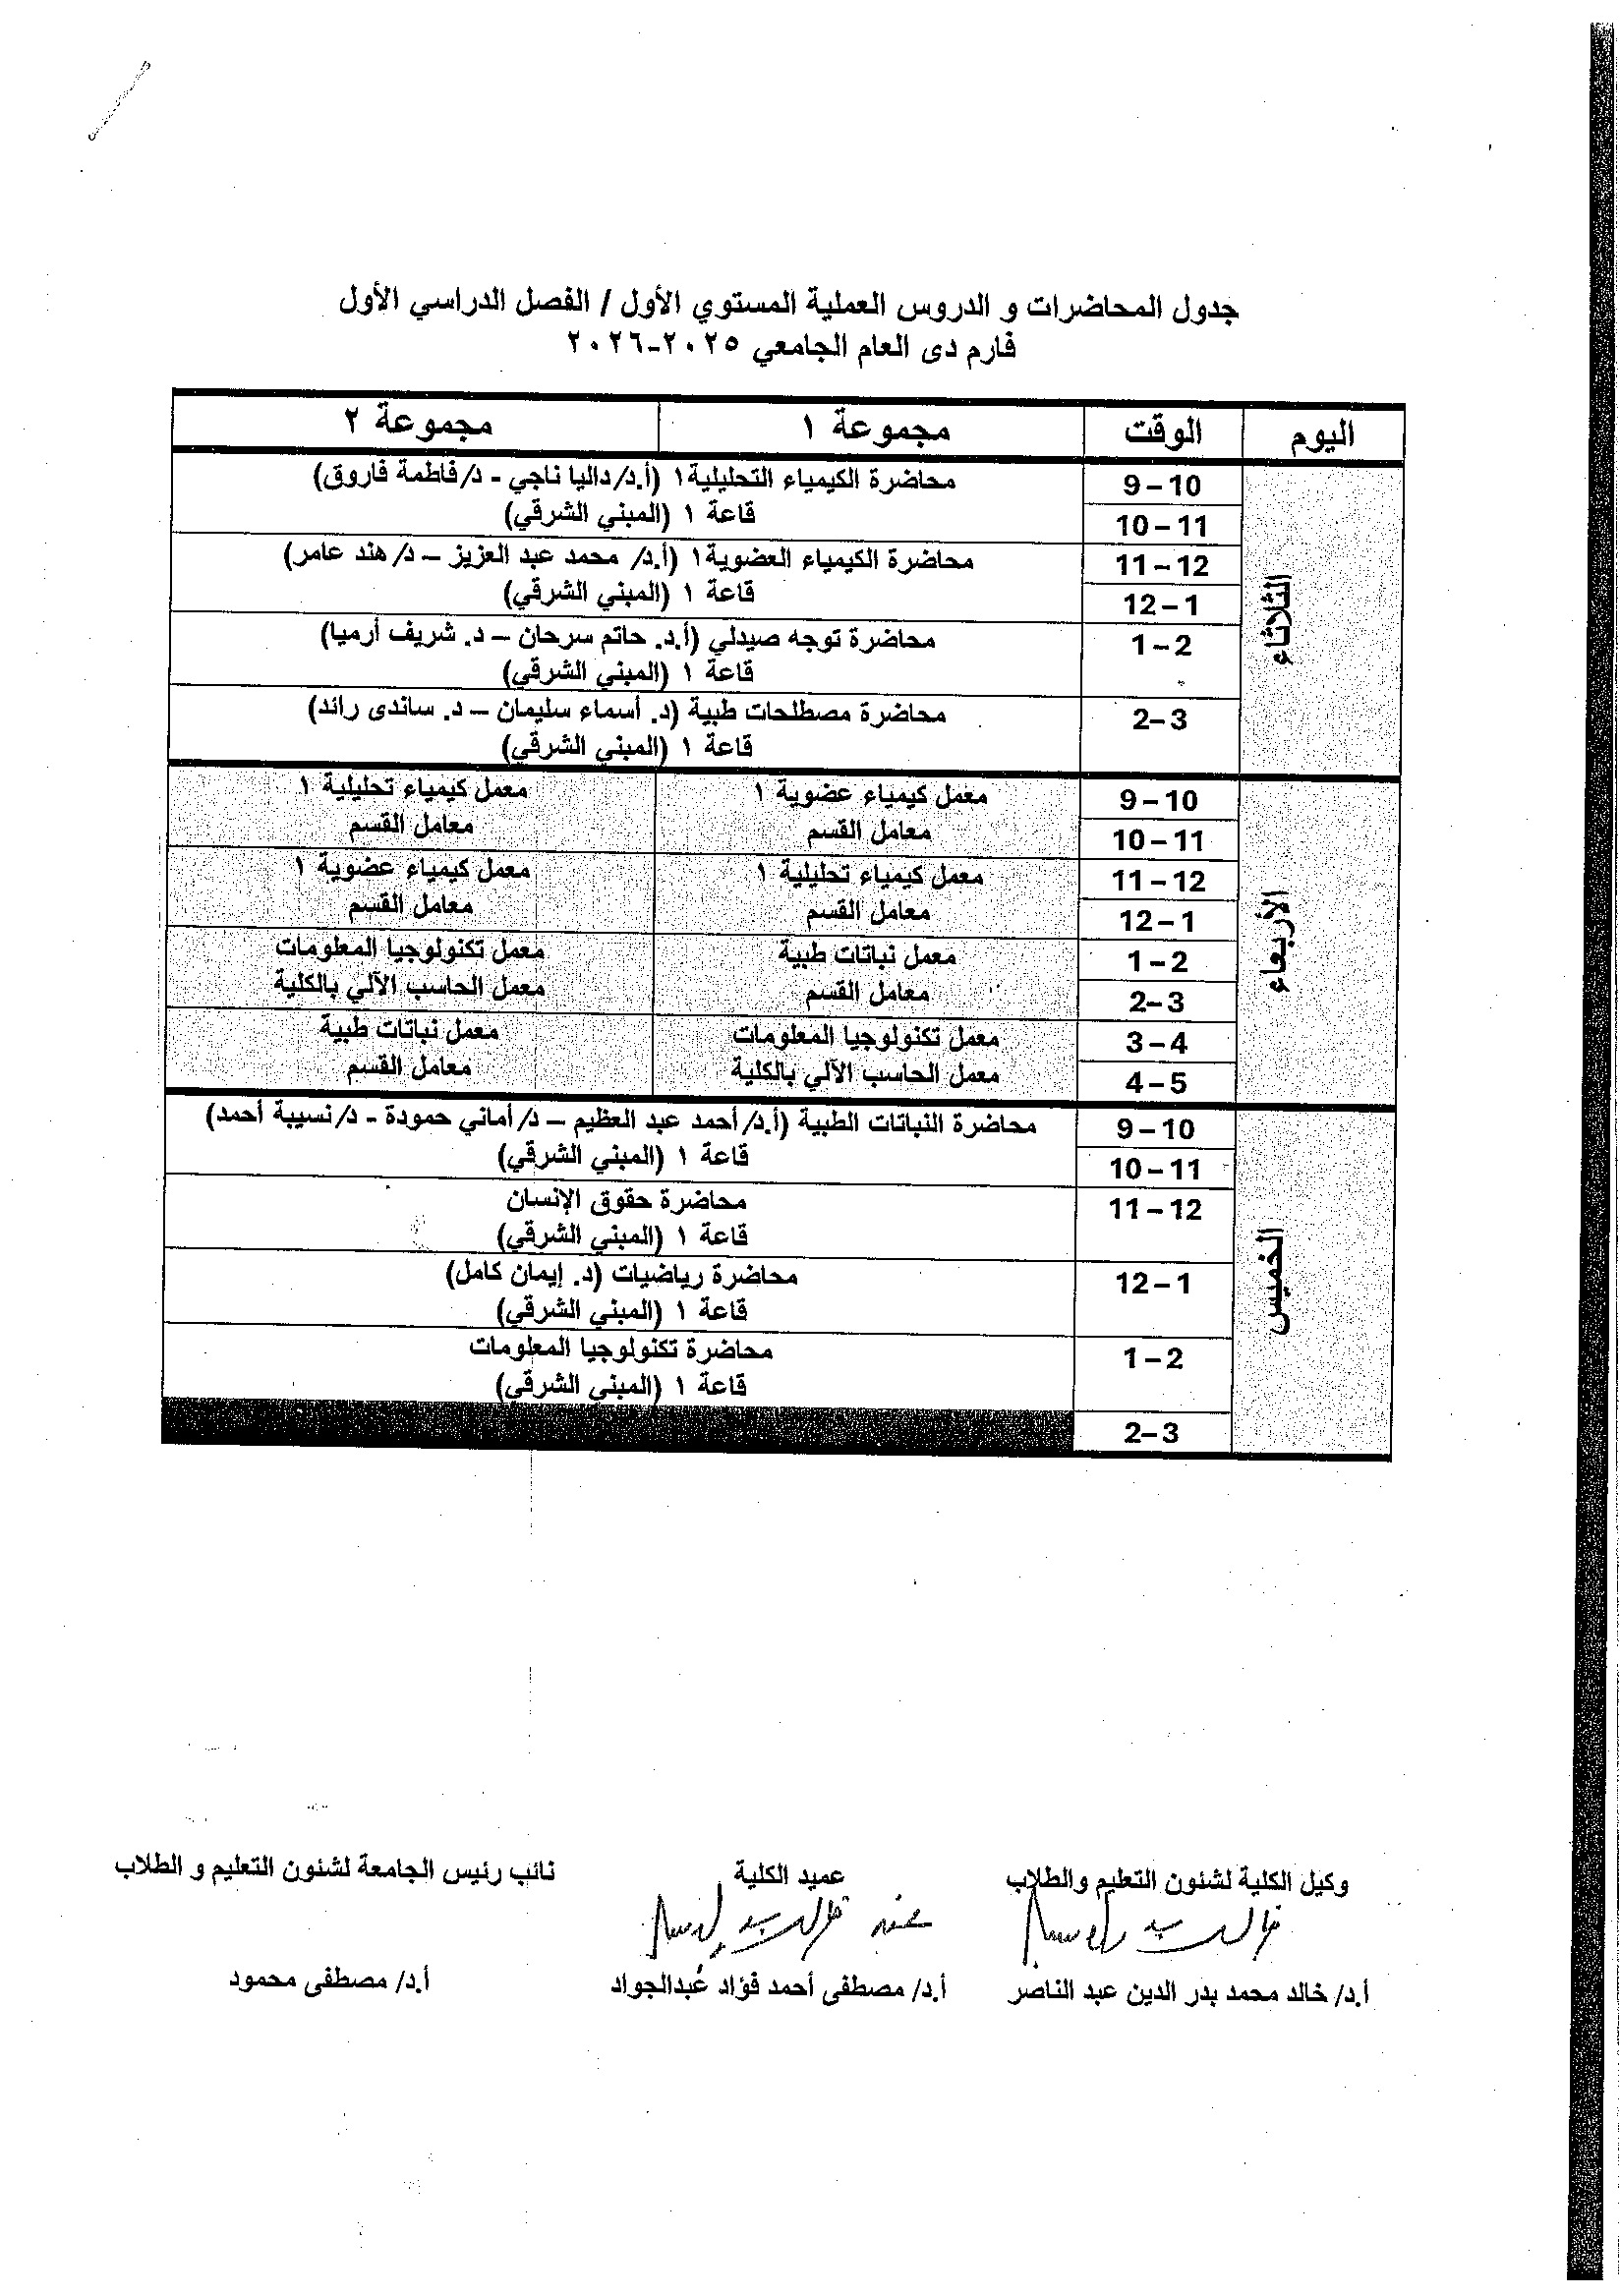 جدول المحاضرات و الدروس العملية المستوي الأول / الفصل الدراسي الأول
فارم دى العام الجامعي ٢٠٢٥-٢٠٢٦
اليوم الوقت مجموعة ١ مجموعة ٢
الثلاثاء
9 – 10
10 – 11
محاضرة الكيمياء التحليلية١ (أ.د/ داليا ناجي - د/ فاطمة فاروق)
قاعة ١ (المبني الشرقي)
11 – 12
12 – 1
محاضرة الكيمياء العضوية١ (أ.د/ محمد عبد العزيز – د/ هند عامر)
قاعة ١ (المبني الشرقي)
1 – 2
محاضرة توجه صيدلي (أ.د. حاتم سرحان – د. شريف أرميا)
قاعة ١ (المبني الشرقي)
2– 3
محاضرة مصطلحات طبية (د. أسماء سليمان – د. ساندى رائد)
قاعة ١ (المبني الشرقي)
الأربعاء
9 – 10
10 – 11
معمل كيمياء عضوية ١
معامل القسم
معمل كيمياء تحليلية ١
معامل القسم
11 – 12
12 – 1
معمل كيمياء تحليلية ١
معامل القسم
معمل كيمياء عضوية ١
معامل القسم
1 – 2
2– 3
معمل نباتات طبية
معامل القسم
معمل تكنولوجيا المعلومات
معمل الحاسب الآلي بالكلية
3 – 4
4 – 5
معمل تكنولوجيا المعلومات
معمل الحاسب الآلي بالكلية
معمل نباتات طبية
معامل القسم
الخميس
9 – 10
10 – 11
محاضرة النباتات الطبية (أ.د/ أحمد عبد العظيم – د/ أماني حمودة - د/ نسيبة أحمد)
قاعة ١ (المبني الشرقي)
11 – 12
محاضرة حقوق الإنسان
قاعة ١ (المبني الشرقي)
12 – 1
محاضرة رياضيات (د. إيمان كامل)
قاعة ١ (المبني الشرقي)
1 – 2
محاضرة تكنولوجيا المعلومات
قاعة ١ (المبني الشرقي)
2– 3
وكيل الكلية لشئون التعليم والطلاب
عميد الكلية
نائب رئيس الجامعة لشئون التعليم و الطلاب
أ.د/ خالد محمد بدر الدين عبد الناصر
أ.د/ مصطفى أحمد فؤاد عبدالجواد
أ.د/ مصطفى محمود